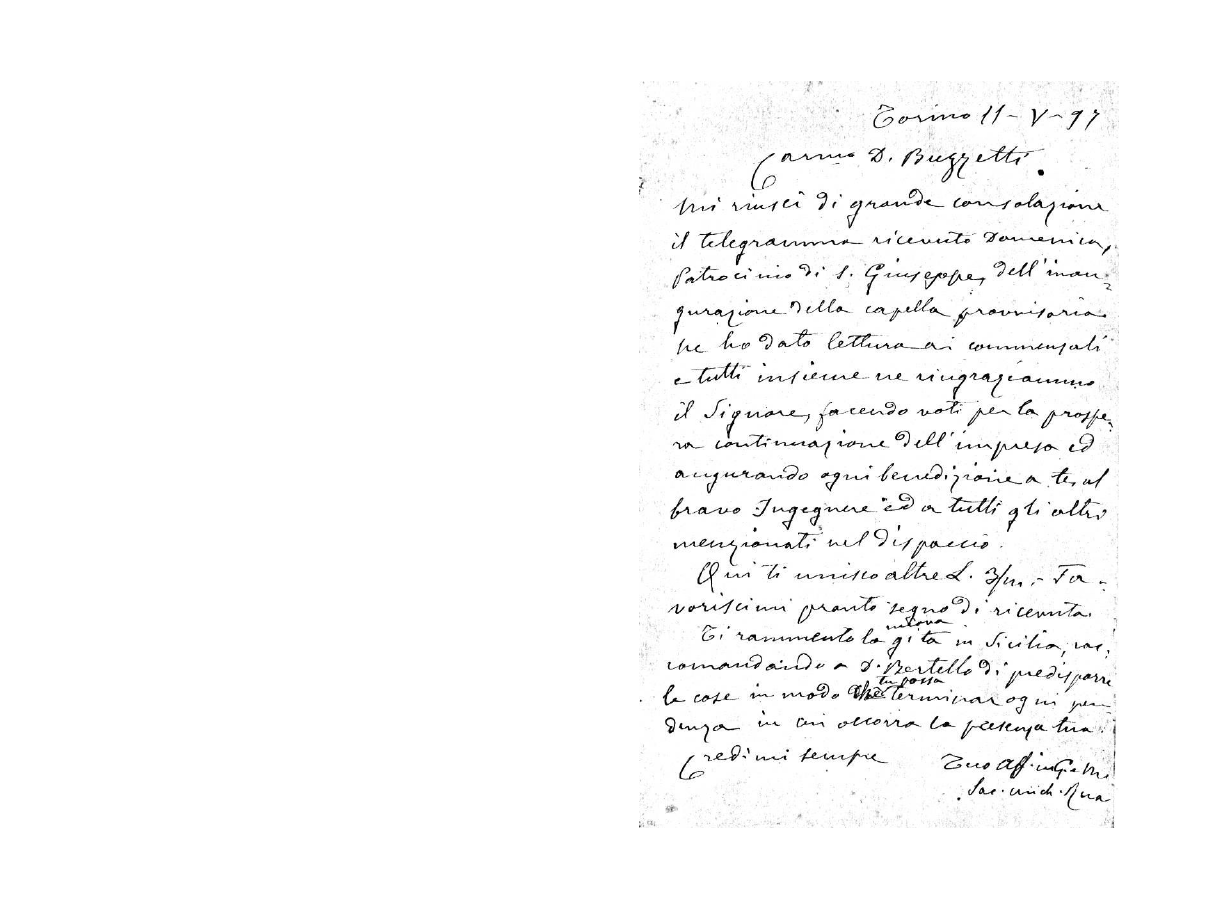 Torino 11 - V - 97
Carmo D. Buzzetti.
Mi riuscì di grande consolazione
il telegramma ricevuto Domenica,
Patrocinio di S. Giuseppe, dell'inau-
gurazione della capella provvisoria.
Ne ho dato lettura ai commensali
e tutti insieme ne ringraziammo
il Signore, facendo voti per la prospe-
ra continuazione dell'impresa ed
augurando ogni benedizione a te, al
bravo Ingegnere ed a tutti gli altri
menzionati nel dispaccio.
Qui ti unisco altre L. 3/m. - Fa-
voriscimi pronto segno di ricevuta.
Ti rammento la nuova gita in Sicilia, rac-
comandando a D. Bertello di predisporre
le cose in modo che tu possa terminar ogni pen-
denza in cui occorra la presenza tua.
Credimi sempre
Tuo Aff. in G. e M.
Sac. Mich. Rua